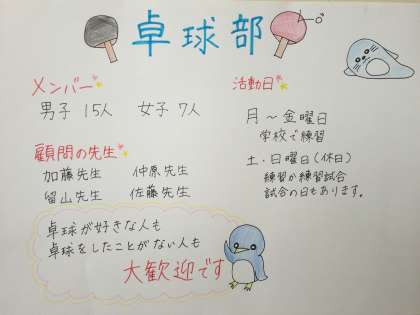 卓球部
メンバー
男子 15人 女子 7人
顧問の先生
加藤先生 仲原先生
留山先生 佐藤先生
活動日
月～金曜日
学校で練習
土・日曜日(休日)
練習か練習試合
試合の日もあります。
卓球が好きな人も
卓球をしたことがない人も
大歓迎です